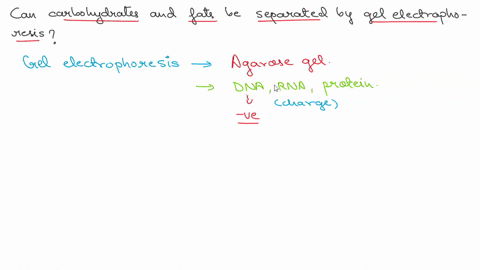 Can carbohydrates and fats be separated by gel electropho-
resis?
Gel electrophoresis → Agarose gel.
→ DNA, RNA, protein.
↓ (charge)
-ve